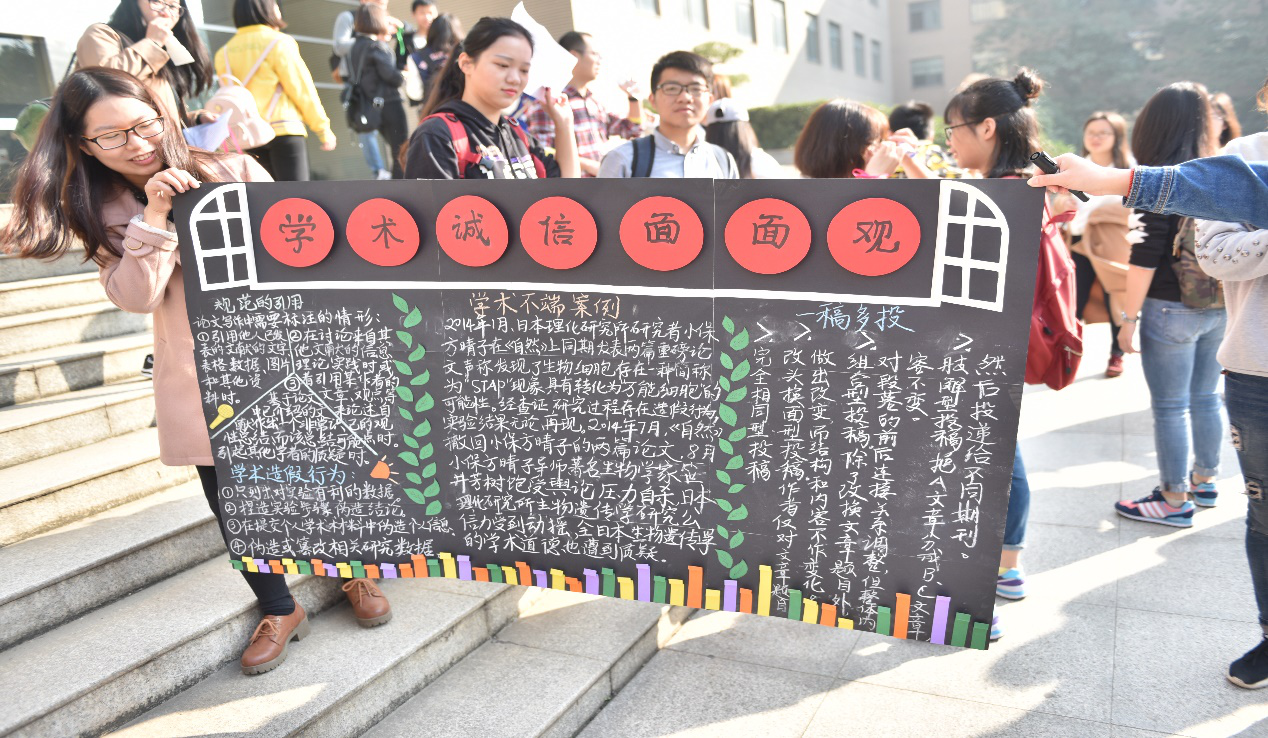 学术诚信面面观
规范的引用
论文写作中需要标注的情形：
①引用他人已发
表的文献的文字
表格数据、图片
和其他资
料时。
②在讨论来自其
他文献的信息
理论实践时或
③看引用某作者的
学术造假行为
①只列出对实验有利的数据
②捏造实验步骤伪造结论
③在提交个人学术材料中伪造个人信息
④伪造或篡改相关研究数据
学术不端案例
2014年1月、日本理化研究所研究者小保
方晴子在《自然》上同期发表两篇重磅论
文声称发现了生物细胞存在一种简称
为“STAP”现象具有转化为万能细胞的
可能性。经查证研究过程存在造假行为
实验结果无法再现。2014年7月《自然》
撤回小保方晴子的两篇论文。8月
小保方晴子导师著名生物学家笹
井芳树饱受舆论压力自杀、日本
理化研究所生物遗传学研究公
信力受到动摇、全日本生物遗传学
的学术道德也遭到质疑。
一稿多投
然后投递给不同期刊。
>肢解型投稿：把A文章分成B、C文章，
容不变。
对段落的前后连接关系调整，但整体内
>组合型投稿：除了改换文章题目外，
做出改变而结构和内容不作变化。
>改头换面型投稿：作者仅对文章题目
>完全相同型投稿